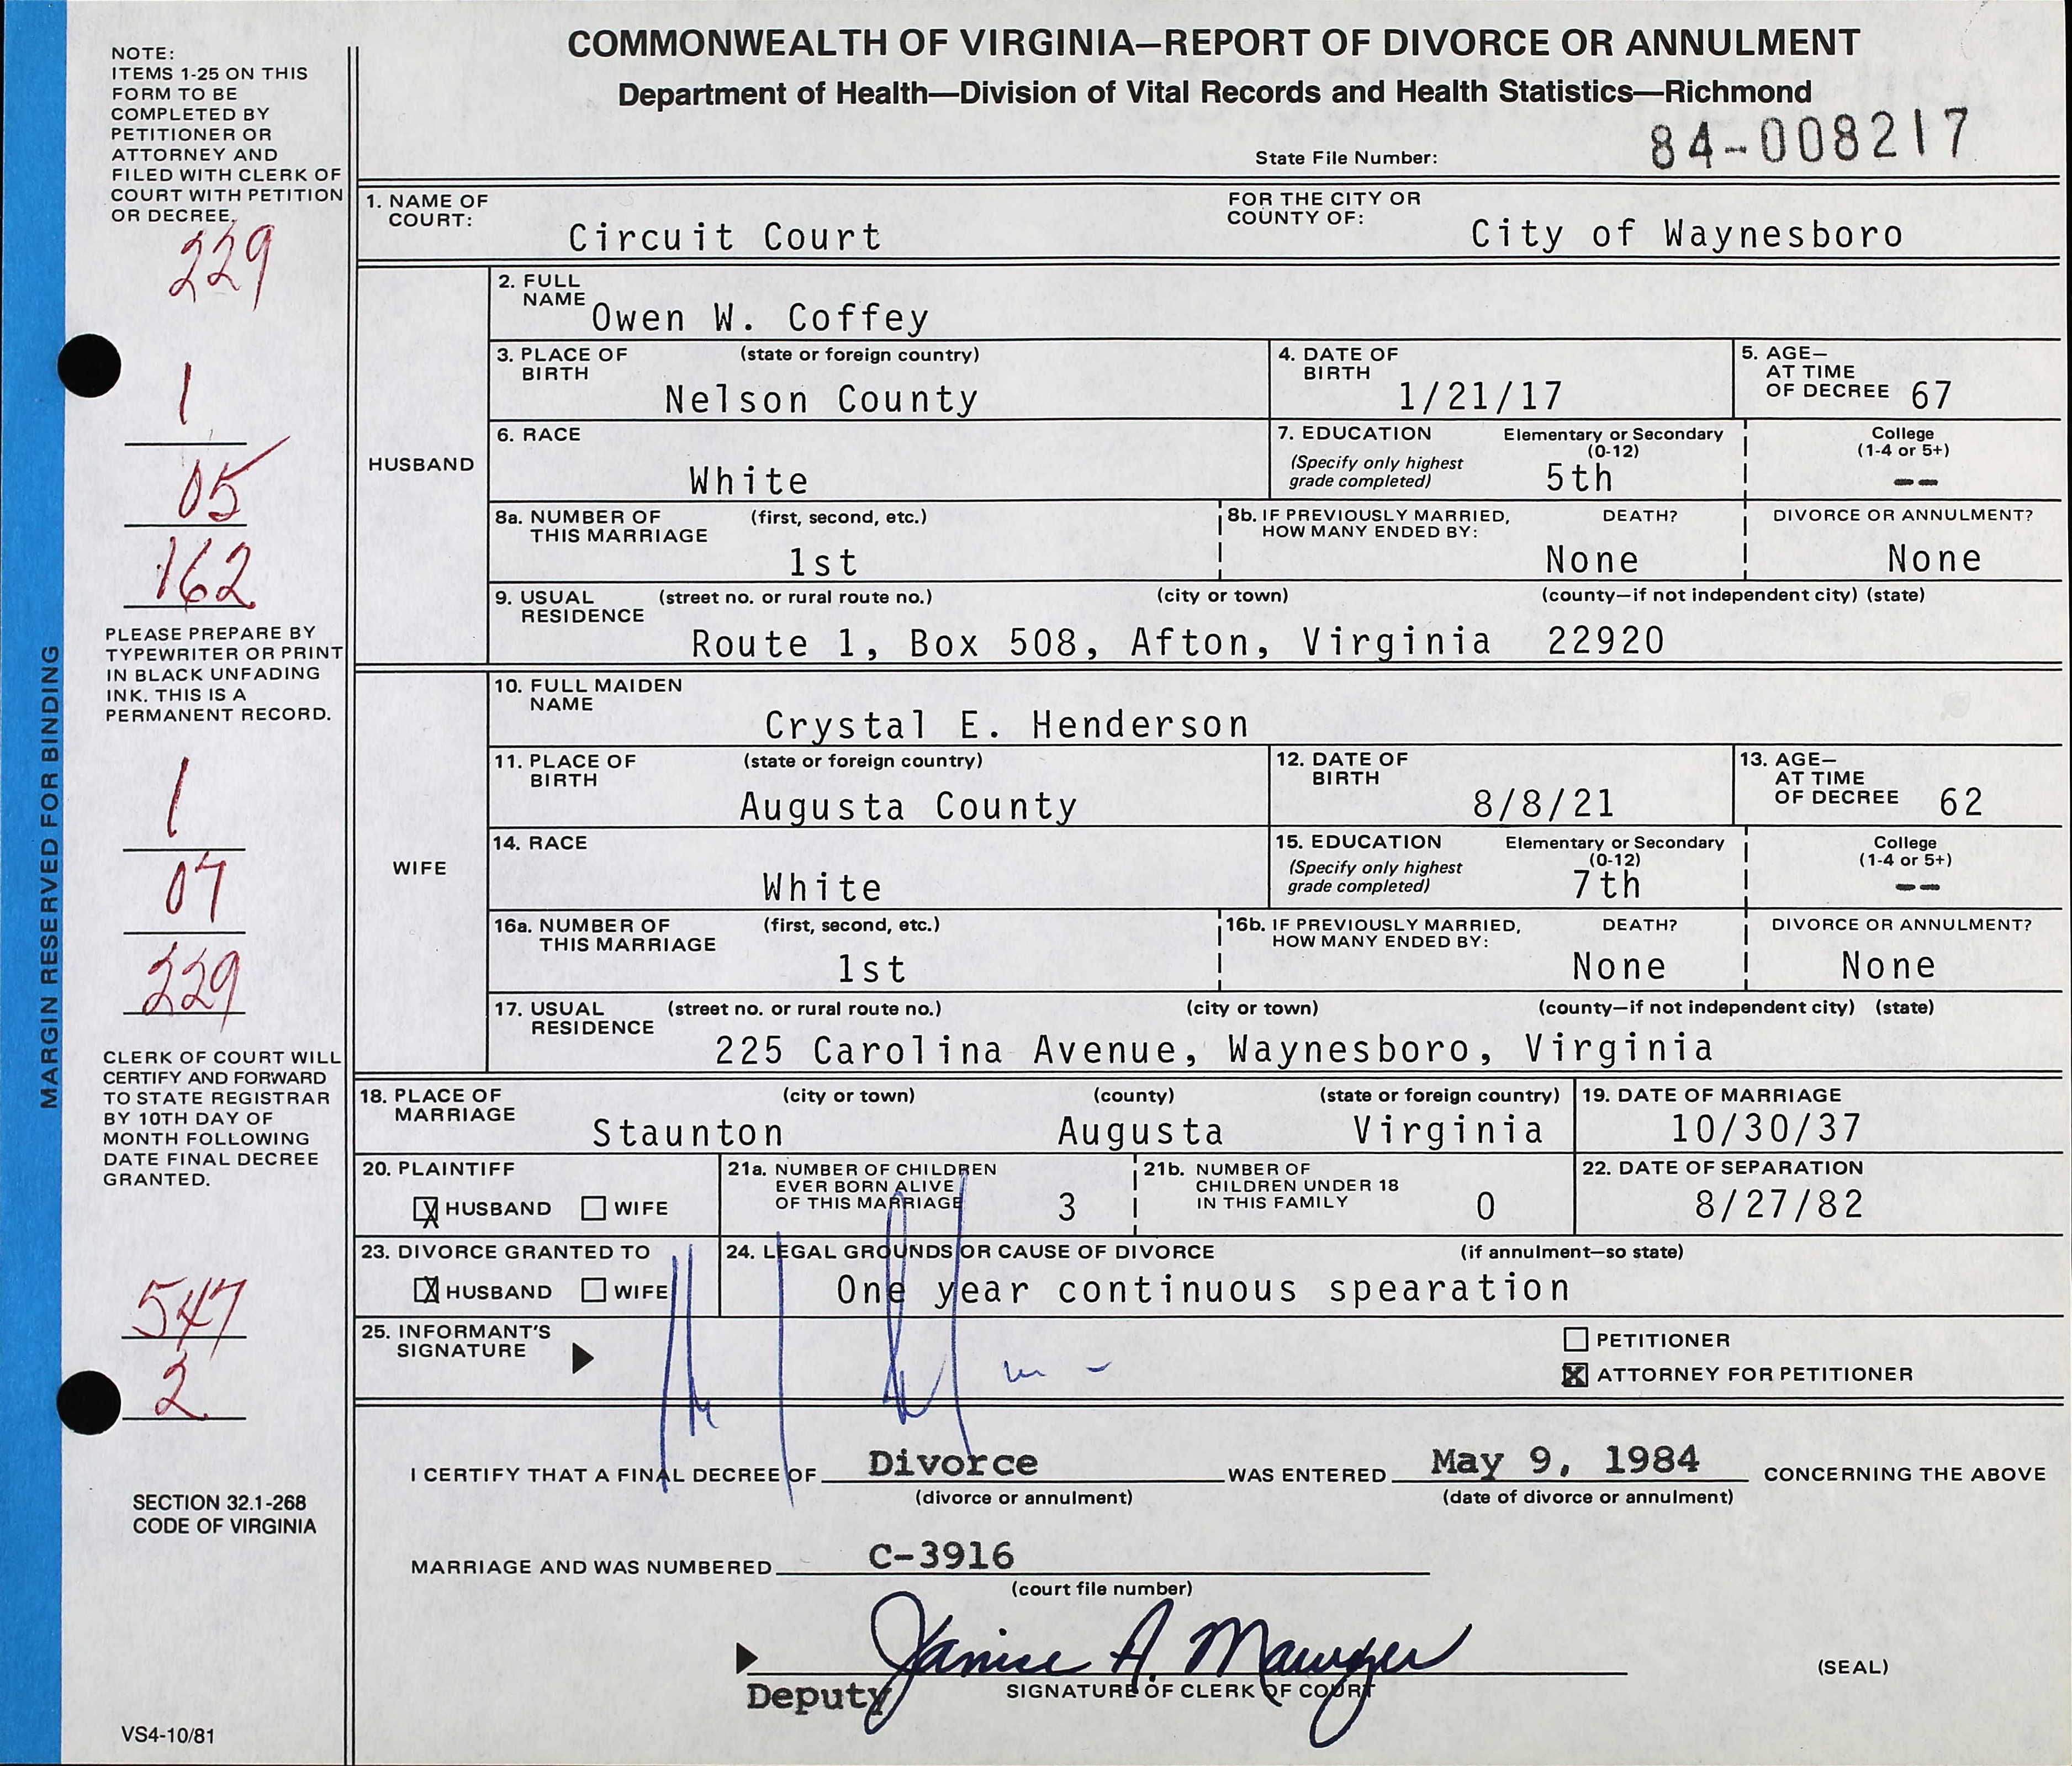 COMMONWEALTH OF VIRGINIA—REPORT OF DIVORCE OR ANNULMENT
Department of Health—Division of Vital Records and Health Statistics—Richmond
State File Number: 84-008217
NOTE:
ITEMS 1-25 ON THIS
FORM TO BE
COMPLETED BY
PETITIONER OR
ATTORNEY AND
FILED WITH CLERK OF
COURT WITH PETITION
OR DECREE.
229
1
05
162
PLEASE PREPARE BY
TYPEWRITER OR PRINT
IN BLACK UNFADING
INK. THIS IS A
PERMANENT RECORD.
1
07
229
CLERK OF COURT WILL
CERTIFY AND FORWARD
TO STATE REGISTRAR
BY 10TH DAY OF
MONTH FOLLOWING
DATE FINAL DECREE
GRANTED.
547
2
SECTION 32.1-268
CODE OF VIRGINIA
VS4-10/81
MARGIN RESERVED FOR BINDING
1. NAME OF COURT: Circuit Court FOR THE CITY OR COUNTY OF: City of Waynesboro
HUSBAND
2. FULL NAME Owen W. Coffey
3. PLACE OF BIRTH (state or foreign country) Nelson County 4. DATE OF BIRTH 1/21/17 5. AGE— AT TIME OF DECREE 67
6. RACE White 7. EDUCATION (Specify only highest grade completed) Elementary or Secondary (0-12) 5th College (1-4 or 5+) --
8a. NUMBER OF THIS MARRIAGE (first, second, etc.) 1st 8b. IF PREVIOUSLY MARRIED, HOW MANY ENDED BY: DEATH? None DIVORCE OR ANNULMENT? None
9. USUAL RESIDENCE (street no. or rural route no.) (city or town) (county—if not independent city) (state)
Route 1, Box 508, Afton, Virginia 22920
WIFE
10. FULL MAIDEN NAME Crystal E. Henderson
11. PLACE OF BIRTH (state or foreign country) Augusta County 12. DATE OF BIRTH 8/8/21 13. AGE— AT TIME OF DECREE 62
14. RACE White 15. EDUCATION (Specify only highest grade completed) Elementary or Secondary (0-12) 7th College (1-4 or 5+) --
16a. NUMBER OF THIS MARRIAGE (first, second, etc.) 1st 16b. IF PREVIOUSLY MARRIED, HOW MANY ENDED BY: DEATH? None DIVORCE OR ANNULMENT? None
17. USUAL RESIDENCE (street no. or rural route no.) (city or town) (county—if not independent city) (state)
225 Carolina Avenue, Waynesboro, Virginia
18. PLACE OF MARRIAGE (city or town) Staunton (county) Augusta (state or foreign country) Virginia 19. DATE OF MARRIAGE 10/30/37
20. PLAINTIFF X HUSBAND WIFE 21a. NUMBER OF CHILDREN EVER BORN ALIVE OF THIS MARRIAGE 3 21b. NUMBER OF CHILDREN UNDER 18 IN THIS FAMILY 0 22. DATE OF SEPARATION 8/27/82
23. DIVORCE GRANTED TO X HUSBAND WIFE 24. LEGAL GROUNDS OR CAUSE OF DIVORCE (if annulment—so state) One year continuous spearation
25. INFORMANT'S SIGNATURE PETITIONER
X ATTORNEY FOR PETITIONER
I CERTIFY THAT A FINAL DECREE OF Divorce WAS ENTERED May 9, 1984 CONCERNING THE ABOVE
(divorce or annulment) (date of divorce or annulment)
MARRIAGE AND WAS NUMBERED C-3916
(court file number)
Janice A.
Deputy SIGNATURE OF CLERK OF COURT (SEAL)